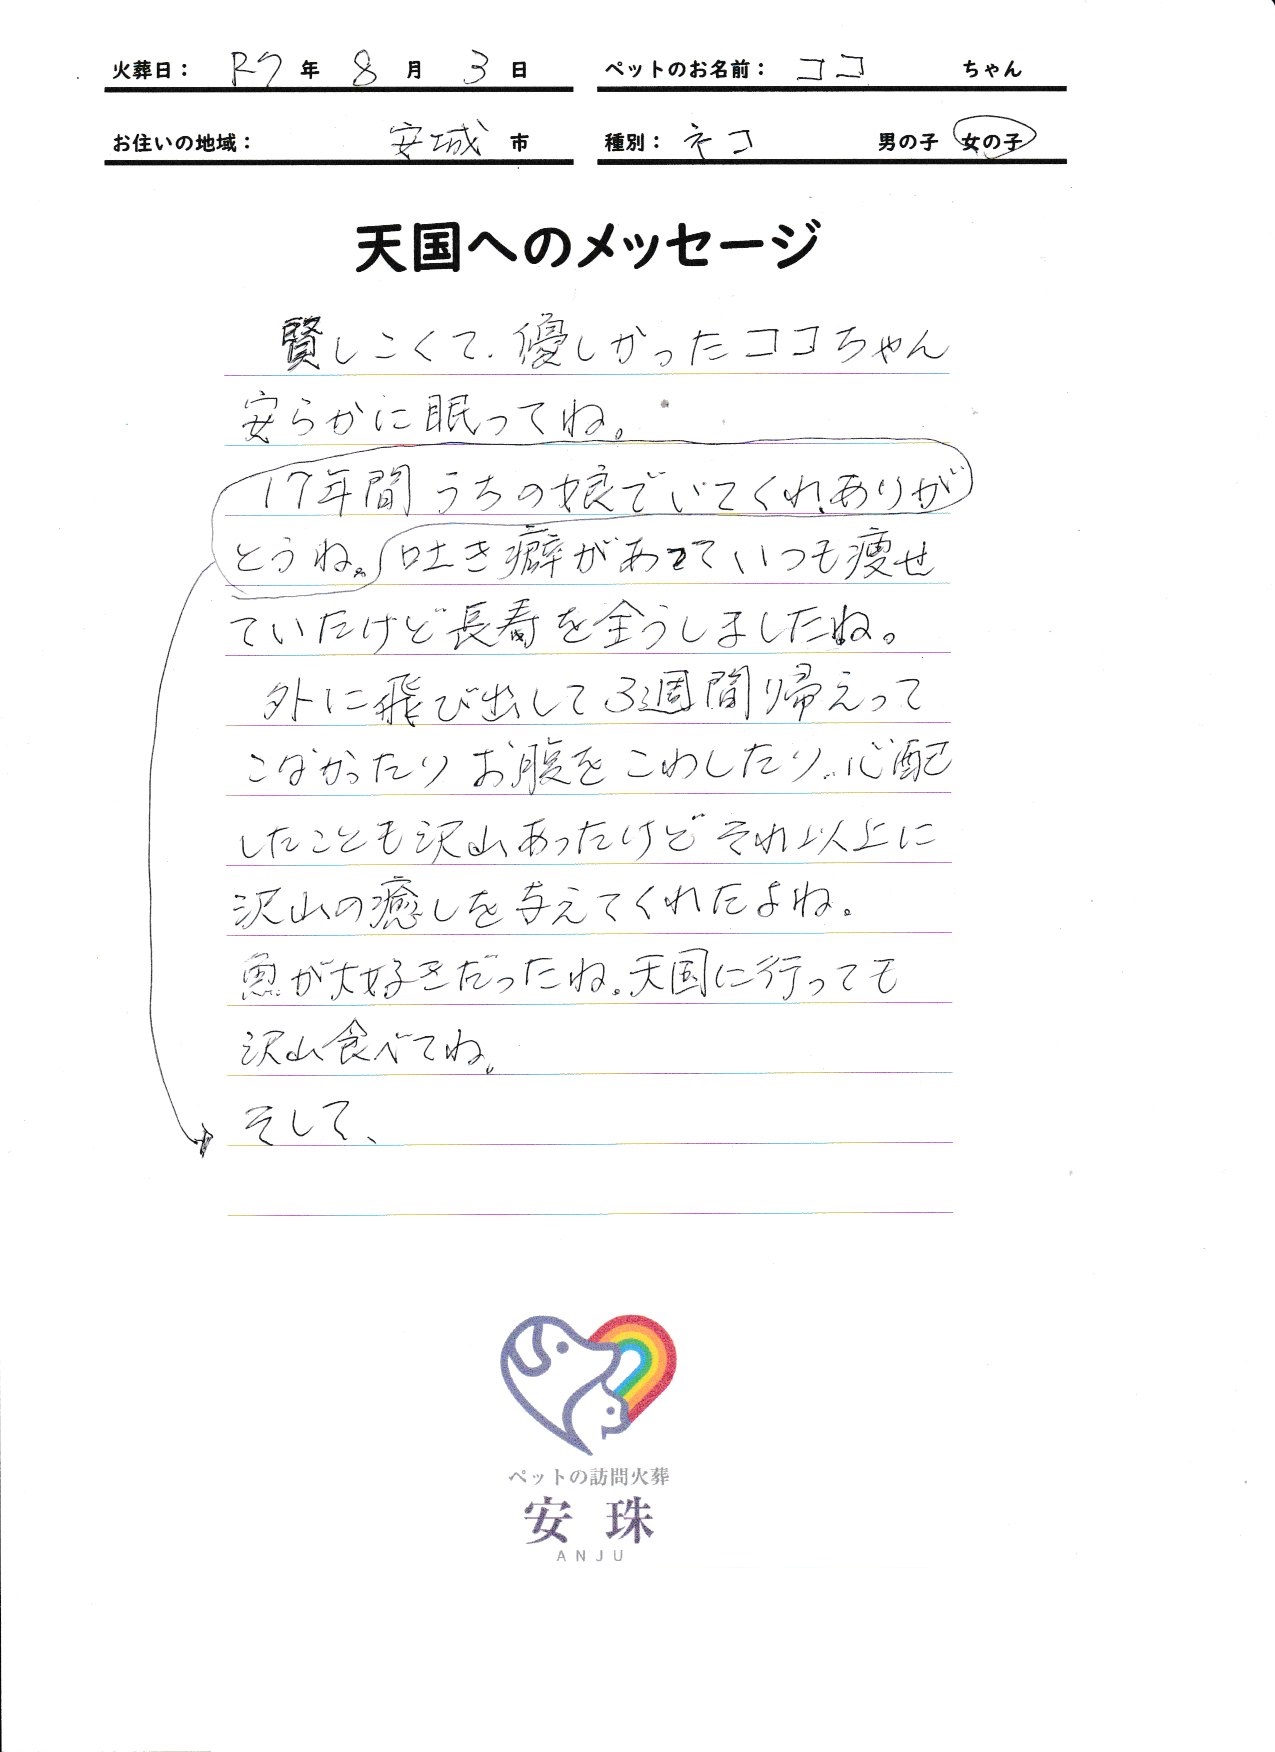 火葬日： R7 年 8 月 3 日
ペットのお名前： ココ ちゃん
お住いの地域： 安城 市
種別： ネコ 男の子 女の子
天国へのメッセージ
賢しこくて、優しかったココちゃん
安らかに眠ってね。
17年間うちの娘でいてくれありが
とうね。吐き癖があっていつも痩せ
ていたけど長寿を全うしましたね。
外に飛び出して3週間帰えって
こなかったりお腹をこわしたり、心配
したことも沢山あったけどそれ以上に
沢山の癒しを与えてくれたよね。
魚が大好きだったね。天国に行っても
沢山食べてね。
そして、
ペットの訪問火葬
安珠
ANJU